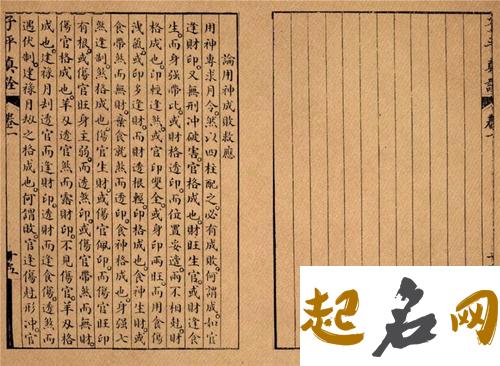 子平真詮 卷一
論用神成敗救應
用神專求月令。然以四柱配之。必有成敗。何謂成。如官
逢財印。又無刑冲破害。官格成也。財旺生官。或財逢食
生。而身強帶比。或財格透印。而位置妥適。兩不相尅。財
格成也。印輕逢煞。或官印雙全。或身印兩旺。而用食傷
洩氣。或印多逢財。而財透根輕。印格成也。食神生財。或
食帶煞而無財。棄食就煞而透印。食神格成也。身強七
煞逢制。煞格成也。傷官生財。或傷官佩印。而傷官旺印
有根。或傷官旺身主弱。而透煞印。或傷官帶煞。而無財。
傷官格成也。羊刃透官煞。而露財印。不見傷官。羊刃格
成也。建祿月刦透官而逢財印。透財而逢食傷。透煞而
遇伏制。建祿月刦之格成也。何謂敗。官逢傷尅刑冲。官
子平真詮 卷一 十五
起名网